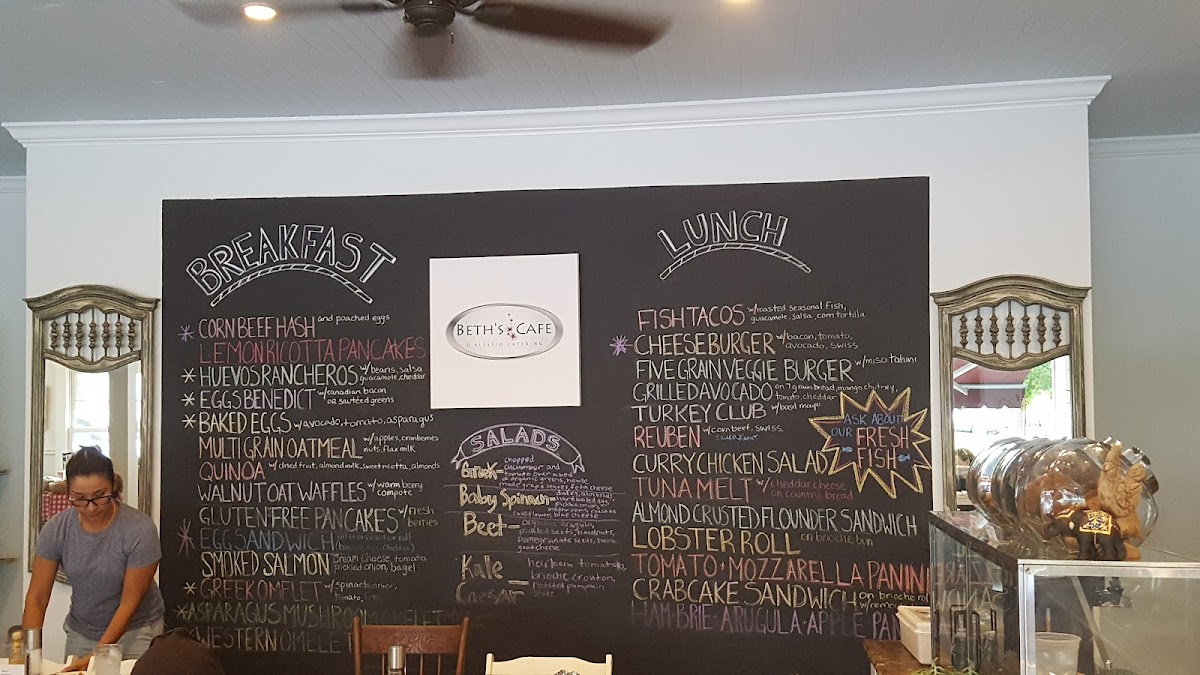 BREAKFAST
* CORN BEEF HASH and poached eggs
LEMON RICOTTA PANCAKES
* HUEVOS RANCHEROS w/beans, salsa
guacamole, cheddar
* EGGS BENEDICT w/canadian bacon
OR sautéed greens
* BAKED EGGS w/avocado, tomato, asparagus
MULTI GRAIN OATMEAL w/apples, cranberries
nuts, flax milk
QUINOA w/ dried fruit, almond milk, sweet ricotta, almonds
WALNUT OAT WAFFLES w/ warm berry
compote
GLUTEN FREE PANCAKES w/fresh
berries
* EGG SANDWICH
SMOKED SALMON cream cheese tomato
pickled onion, bagel
* GREEK OMELET w/spinach, onion,
tomato, feta
* ASPARAGUS MUSHROOM OMELET
* WESTERN OMELET
BETH'S CAFE
D'ALESSIO CATERING
SALADS
Greek- chopped
cucumber and
tomato over a bed
of organic greens, house
made grape leaves, feta cheese
Baby Spinach- dates, almonds,
hard boiled egg
blue cheese
Beet- organic arugula,
pickled beets, hazelnuts,
pomegranate seeds,
goat cheese
Kale Caesar - heirloom tomatoes
brioche crouton,
roasted pumpkin
seeds
LUNCH
FISH TACOS w/roasted seasonal fish,
guacamole, salsa, corn tortilla
* CHEESEBURGER w/bacon, tomato,
avocado, swiss
FIVE GRAIN VEGGIE BURGER w/miso tahini
GRILLED AVOCADO on 7 grain bread, mango chutney,
tomato, cheddar
TURKEY CLUB w/basil mayo
REUBEN w/corn beef, swiss,
sauerkraut
CURRY CHICKEN SALAD
TUNA MELT w/cheddar cheese
on country bread
ALMOND CRUSTED FLOUNDER SANDWICH
on brioche bun
LOBSTER ROLL
TOMATO + MOZZARELLA PANINI
CRABCAKE SANDWICH on brioche roll
HAM · BRIE · ARUGULA · APPLE PAN
ASK ABOUT
OUR FRESH
FISH